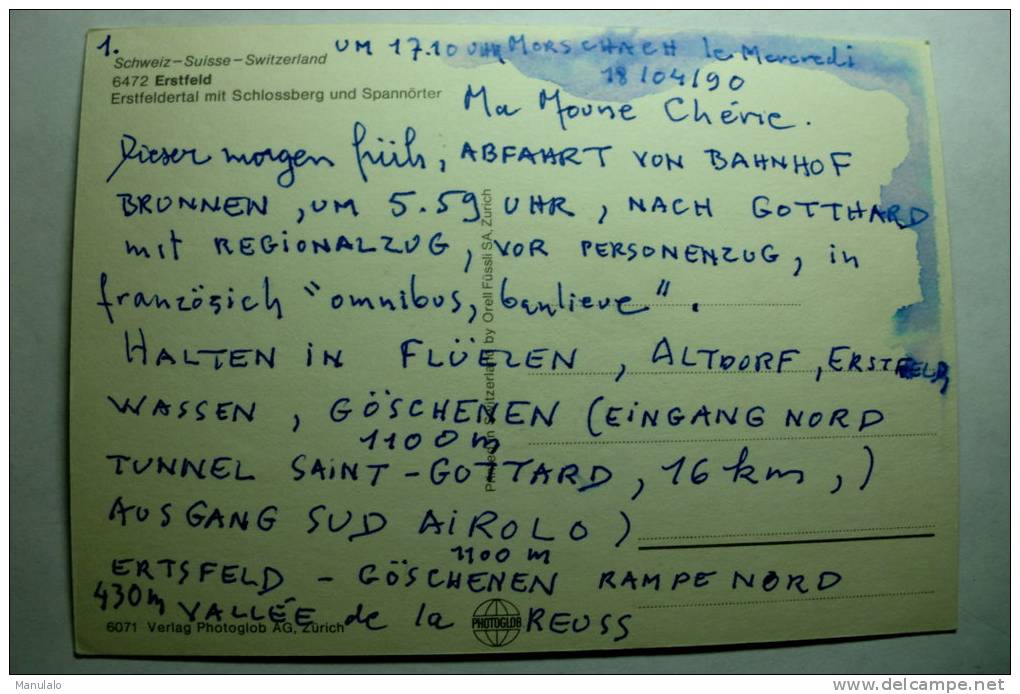 1.
UM 17.10 UHR MORSCHACH le Mercredi
Schweiz–Suisse–Switzerland
18/04/90
6472 Erstfeld
Erstfeldertal mit Schlossberg und Spannörter
Ma Moune Chérie.
Dieser morgen früh, ABFAHRT VON BAHNHOF
BRUNNEN, UM 5.59 UHR, NACH GOTTHARD
mit REGIONALZUG, VOR PERSONENZUG, in
französich "omnibus, banlieue".
HALTEN in FLÜELEN, ALTDORF, ERSTFELD,
WASSEN, GÖSCHENEN (EINGANG NORD
1100 m
TUNNEL SAINT-GOTTARD, 16 km,)
AUSGANG SUD AIROLO)
1100 m
ERTSFELD – GÖSCHENEN RAMPE NORD
430m VALLÉE de la REUSS
6071 Verlag Photoglob AG, Zürich
PHOTOGLOB
Printed in Switzerland by Orell Füssli SA, Zurich
Manulalo
delcampe.net